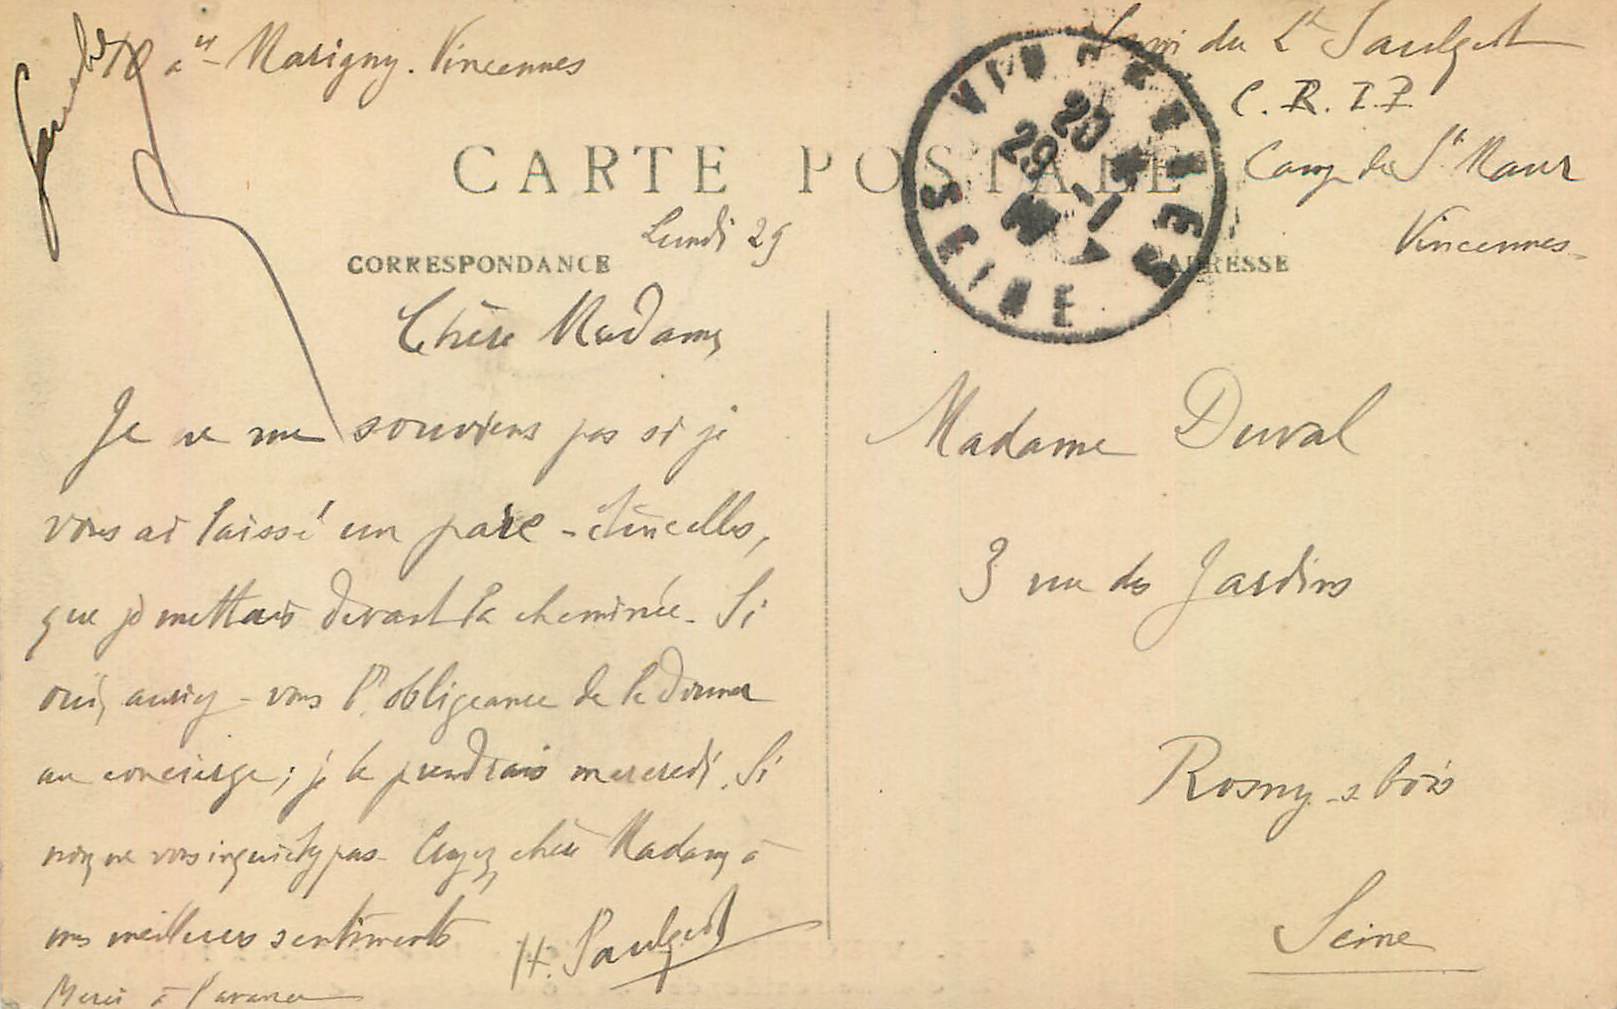 18 av Marigny. Vincennes
Envoi du Lt Saulget
C.R.I.P.
Camp de St Maur
Vincennes
CARTE POSTALE
CORRESPONDANCE
ADRESSE
VINCENNES
SEINE
20
29 - 1
Lundi 29
Chère Madame,
Je ne me souviens pas si je
vous ai laissé un pare-étincelles,
que je mettais devant la cheminée. Si
oui, auriez-vous l'obligeance de le donner
au concierge; je le prendrais mercredi. Si
non, ne vous inquiétez pas. Croyez, chère Madame, à
mes meilleurs sentiments
H. Saulget
Merci à l'avance
Madame Duval
3 rue des Jardins
Rosny-s-bois
Seine